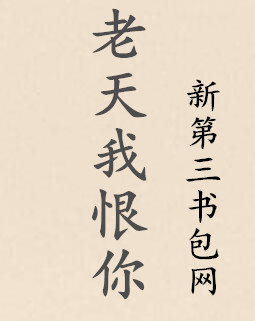 老天我恨你
新第三书包网